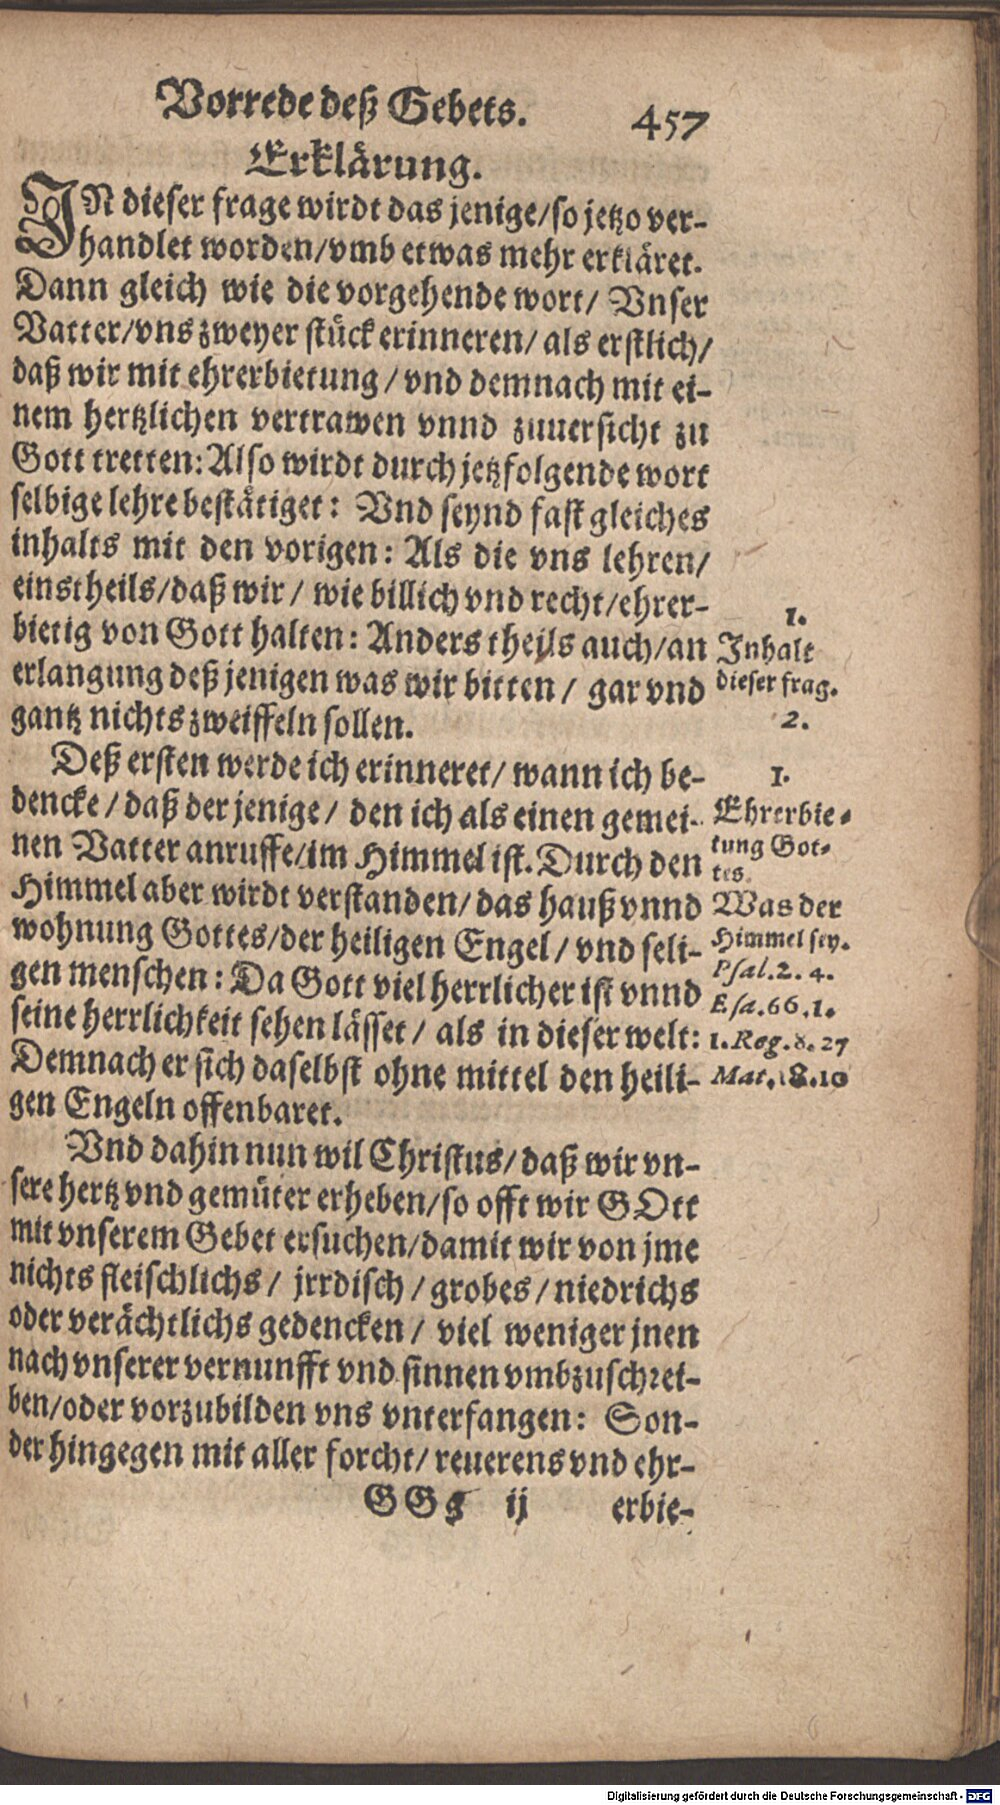 Vorrede deß Gebets. 457
Erklärung.
IN dieser frage wirdt das jenige/so jetzo ver-
handlet worden/vmb etwas mehr erkläret.
Dann gleich wie die vorgehende wort/ Vnser
Vatter/vns zweyer stück erinneren/ als erstlich/
daß wir mit ehrerbietung/vnd demnach mit ei-
nem hertzlichen vertrawen vnnd zuuersicht zu
Gott tretten: Also wirdt durch jetzfolgende wort
selbige lehre bestätiget: Vnd seynd fast gleiches
inhalts mit den vorigen: Als die vns lehren/
einstheils/daß wir/ wie billich vnd recht/ehrer-
bietig von Gott halten: Anders theils auch/an
erlangung deß jenigen was wir bitten/ gar vnd
gantz nichts zweiffeln sollen.
1.
Inhalt
dieser frag.
2.
Deß ersten werde ich erinneret/ wann ich be-
dencke/daß der jenige/ den ich als einen gemei-
nen Vatter anruffe/im Himmel ist. Durch den
Himmel aber wirdt verstanden/das hauß vnnd
wohnung Gottes/der heiligen Engel/vnd seli-
gen menschen: Da Gott viel herrlicher ist vnnd
seine herrlichkeit sehen lässet/ als in dieser welt:
Demnach er sich daselbst ohne mittel den heili-
gen Engeln offenbaret.
1.
Ehrerbie-
tung Got-
tes.
Was der
Himmel sey.
Psal. 2. 4.
Esa. 66. 1.
1. Reg. 8. 27
Mat. 18. 10
Vnd dahin nun wil Christus/daß wir vn-
sere hertz vnd gemüter erheben/so offt wir GOtt
mit vnserem Gebet ersuchen/damit wir von jme
nichts fleischlichs/ jrrdisch/grobes/niedrichs
oder verächtlichs gedencken/ viel weniger jnen
nach vnserer vernunfft vnd sinnen vmbzuschrei-
ben/oder vorzubilden vns vnterfangen: Son-
der hingegen mit aller forcht/reuerens vnd ehr-
GGg ij erbie-
Digitalisierung gefördert durch die Deutsche Forschungsgemeinschaft - DFG